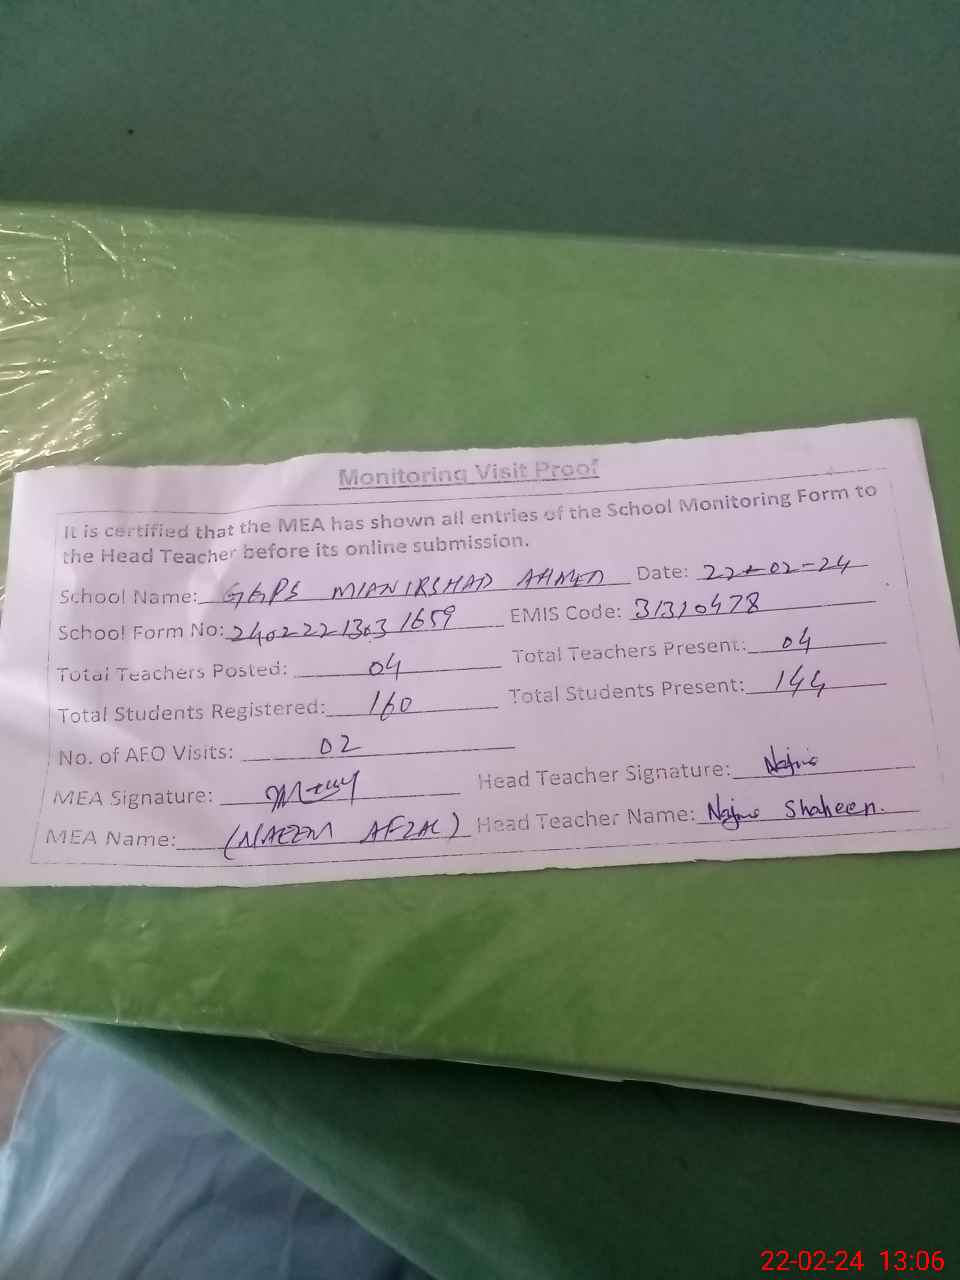 Monitoring Visit Proof
It is certified that the MEA has shown all entries of the School Monitoring Form to
the Head Teacher before its online submission.
School Name: GGPS MIAN IRSHAD AHMED Date: 22-02-24
School Form No: 24022213031659 EMIS Code: 31310478
Total Teachers Posted: 04 Total Teachers Present: 04
Total Students Registered: 160 Total Students Present: 144
No. of AEO Visits: 02
MEA Signature: Head Teacher Signature: Najma
MEA Name: (NAEEM AFZAL) Head Teacher Name: Najma Shaheen.
22-02-24 13:06